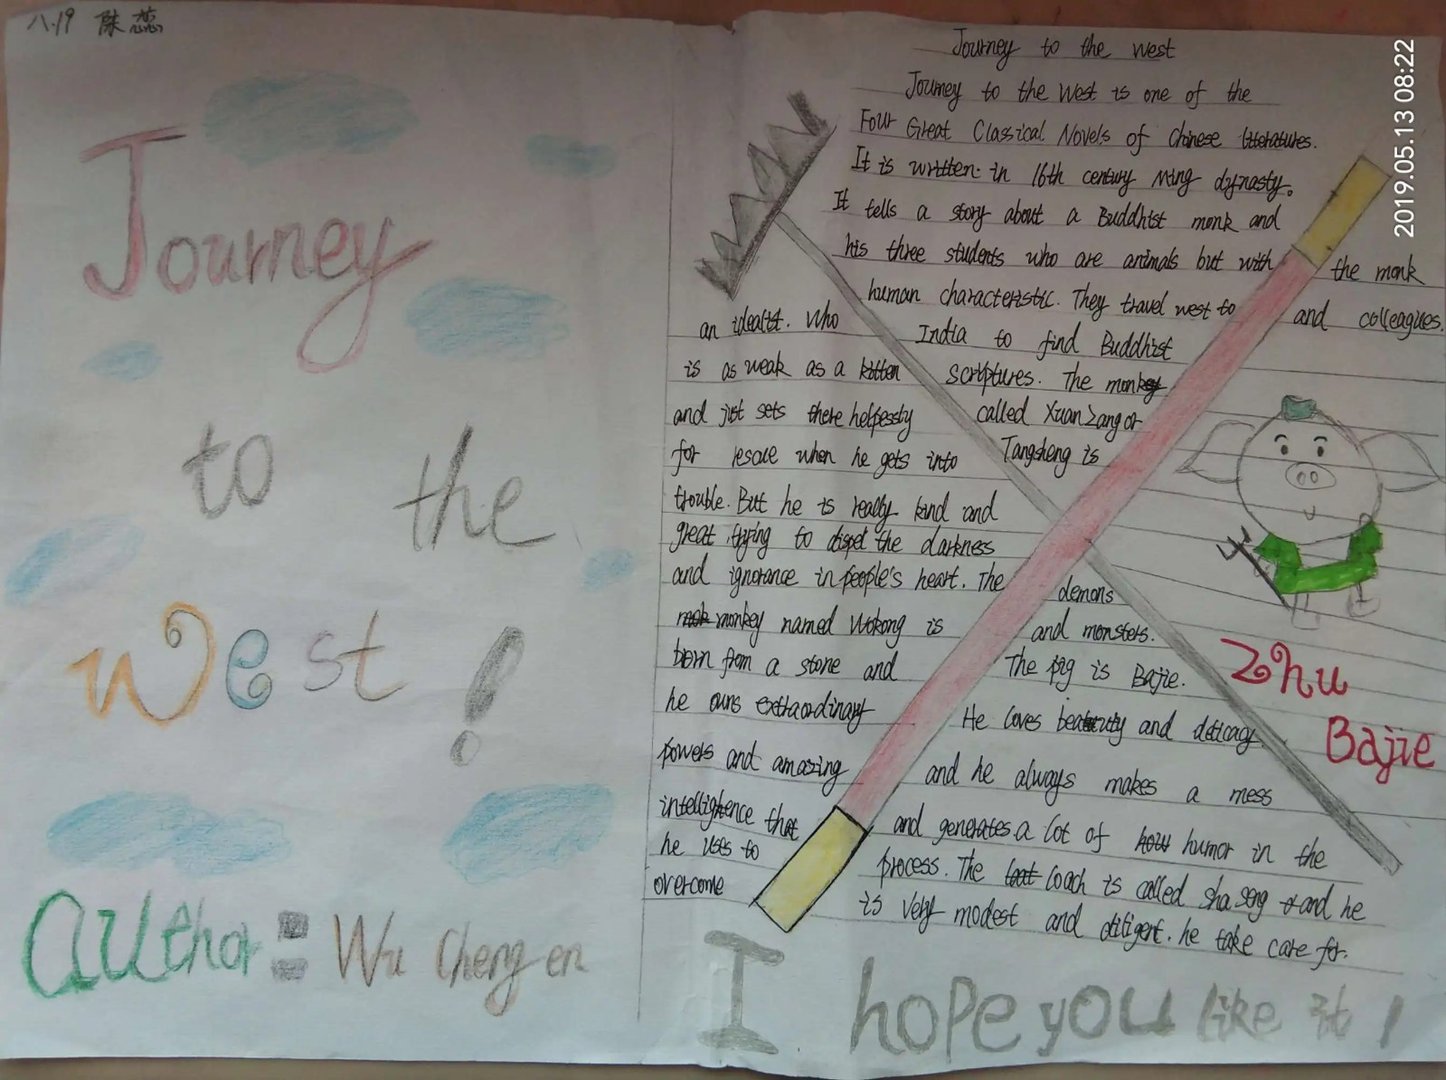 八.19 陈蕊
Journey
to the
West!
Author: Wu Cheng en
2019.05.13 08:22
Journey to the west
Journey to the West is one of the
Four Great Classical Novels of Chinese literatures.
It is written in 16th century Ming dynasty.
It tells a story about a Buddhist monk and
his three students who are animals but with
human characteristic. They travel west to
India to find Buddhist
scriptures. The monk
called XuanZang or
Tangsheng is
an idealist. Who
is as weak as a kitten
and just sets there helpessly
for resoce when he gets into
trouble. But he is really kind and
great trying to dispel the darkness
and ignorance in people's heart. The
monkey named Wokong is
born from a stone and
he owns extraordinary
powers and amazing
intelligence that
he uses to
overcome
demons
and monsters.
The pig is Bajie.
He loves beauty and delicacy
and he always makes a mess
and generates a lot of humor in the
process. The coach is called Sha Seng and he
is very modest and diligent. he take care for
the monk
and colleagues.
Zhu
Bajie
I hope you like it!